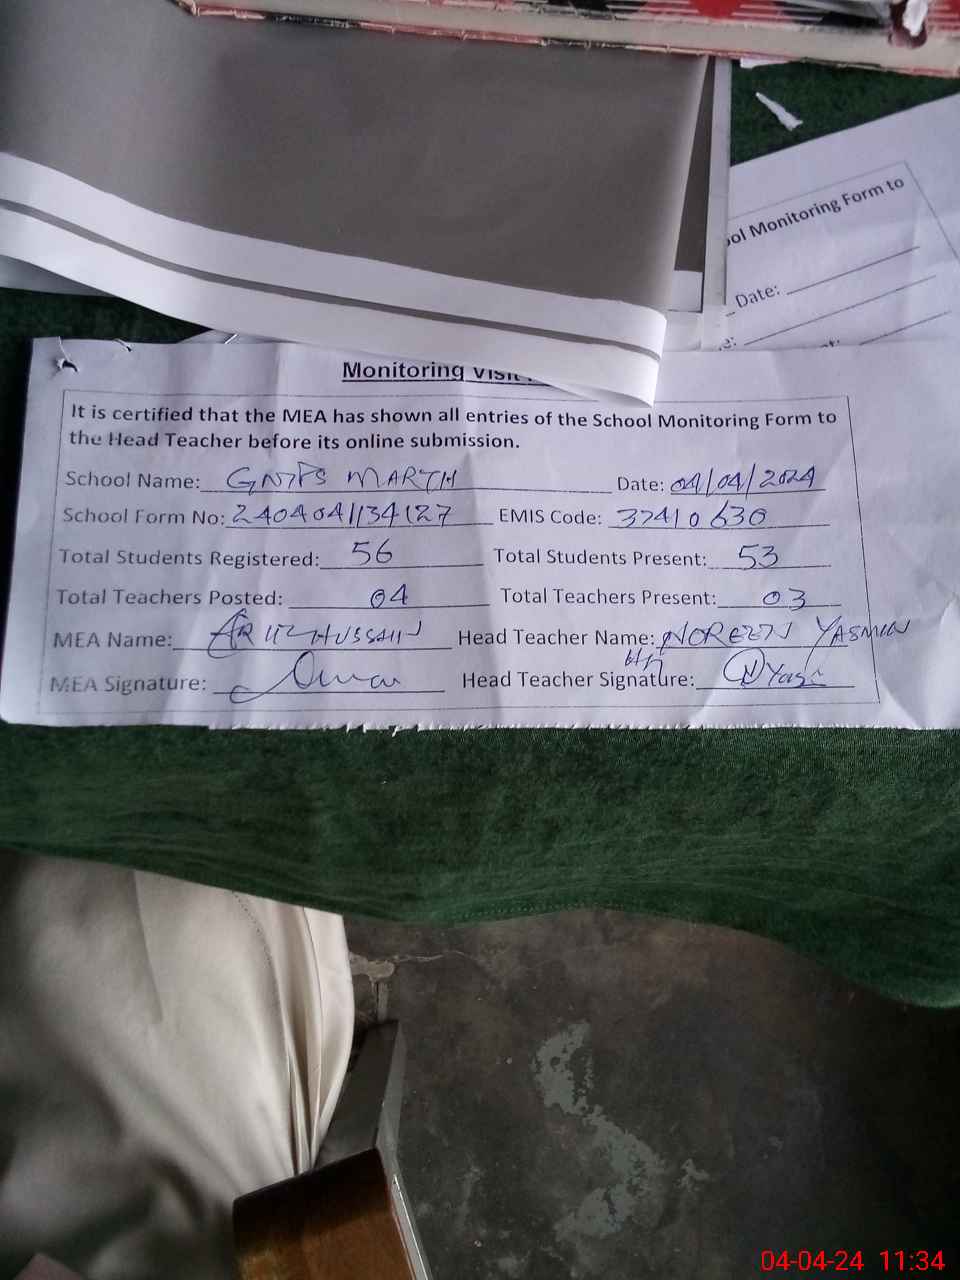 ool Monitoring Form to
Date:
Monitoring Visit
It is certified that the MEA has shown all entries of the School Monitoring Form to
the Head Teacher before its online submission.
School Name: MARTH Date: 04/04/2024
School Form No: 2404041134127 EMIS Code: 37410630
Total Students Registered: 56 Total Students Present: 53
Total Teachers Posted: 04 Total Teachers Present: 03
MEA Name: HUSSAIN Head Teacher Name: NOREEN YASMIN
MEA Signature: Head Teacher Signature:
04-04-24 11:34